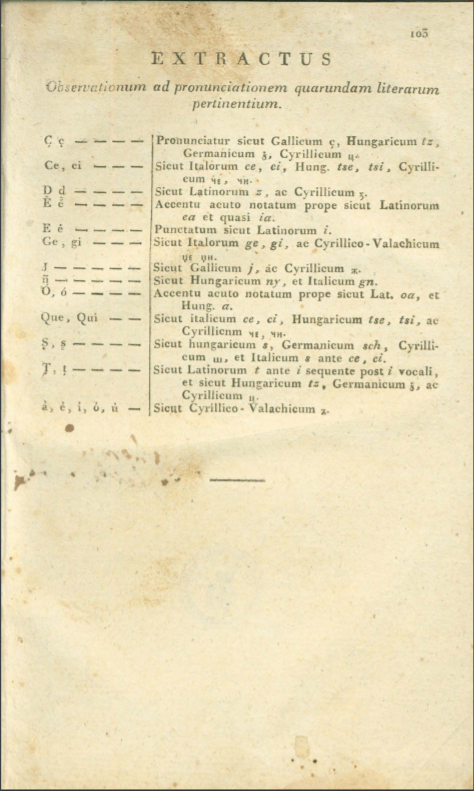 103
EXTRACTUS
Observationum ad pronunciationem quarundam literarum
pertinentium.
Ç ç — — — — Pronunciatur sicut Gallicum ç, Hungaricum tz,
Germanicum ʒ, Cyrillicum ц.
Ce, ci — — — Sicut Italorum ce, ci, Hung. tse, tsi, Cyrilli-
cum чє, чи.
D d — — — — Sicut Latinorum z, ac Cyrillicum ʒ.
É é — — — — Accentu acuto notatum prope sicut Latinorum
ea et quasi ia.
E ė — — — — Punctatum sicut Latinorum i.
Ge, gi — — — Sicut Italorum ge, gi, ac Cyrillico-Valachicum
џє џи.
J — — — — — Sicut Gallicum j, ac Cyrillicum ж.
ñ — — — — — Sicut Hungaricum ny, et Italicum gn.
Ó, ó — — — — Accentu acuto notatum prope sicut Lat. oa, et
Hung. a.
Que, Qui — — Sicut italicum ce, ci, Hungaricum tse, tsi, ac
Cyrillicnm чє, чи.
Ş, ş — — — — Sicut hungaricum s, Germanicum sch, Cyrilli-
cum ш, et Italicum s ante ce, ci.
Ţ, ţ — — — — Sicut Latinorum t ante i sequente post i vocali,
et sicut Hungaricum tz, Germanicum ʒ, ac
Cyrillicum ц.
à, é, í, ó, ù — Sicut Cyrillico-Valachicum ѫ.